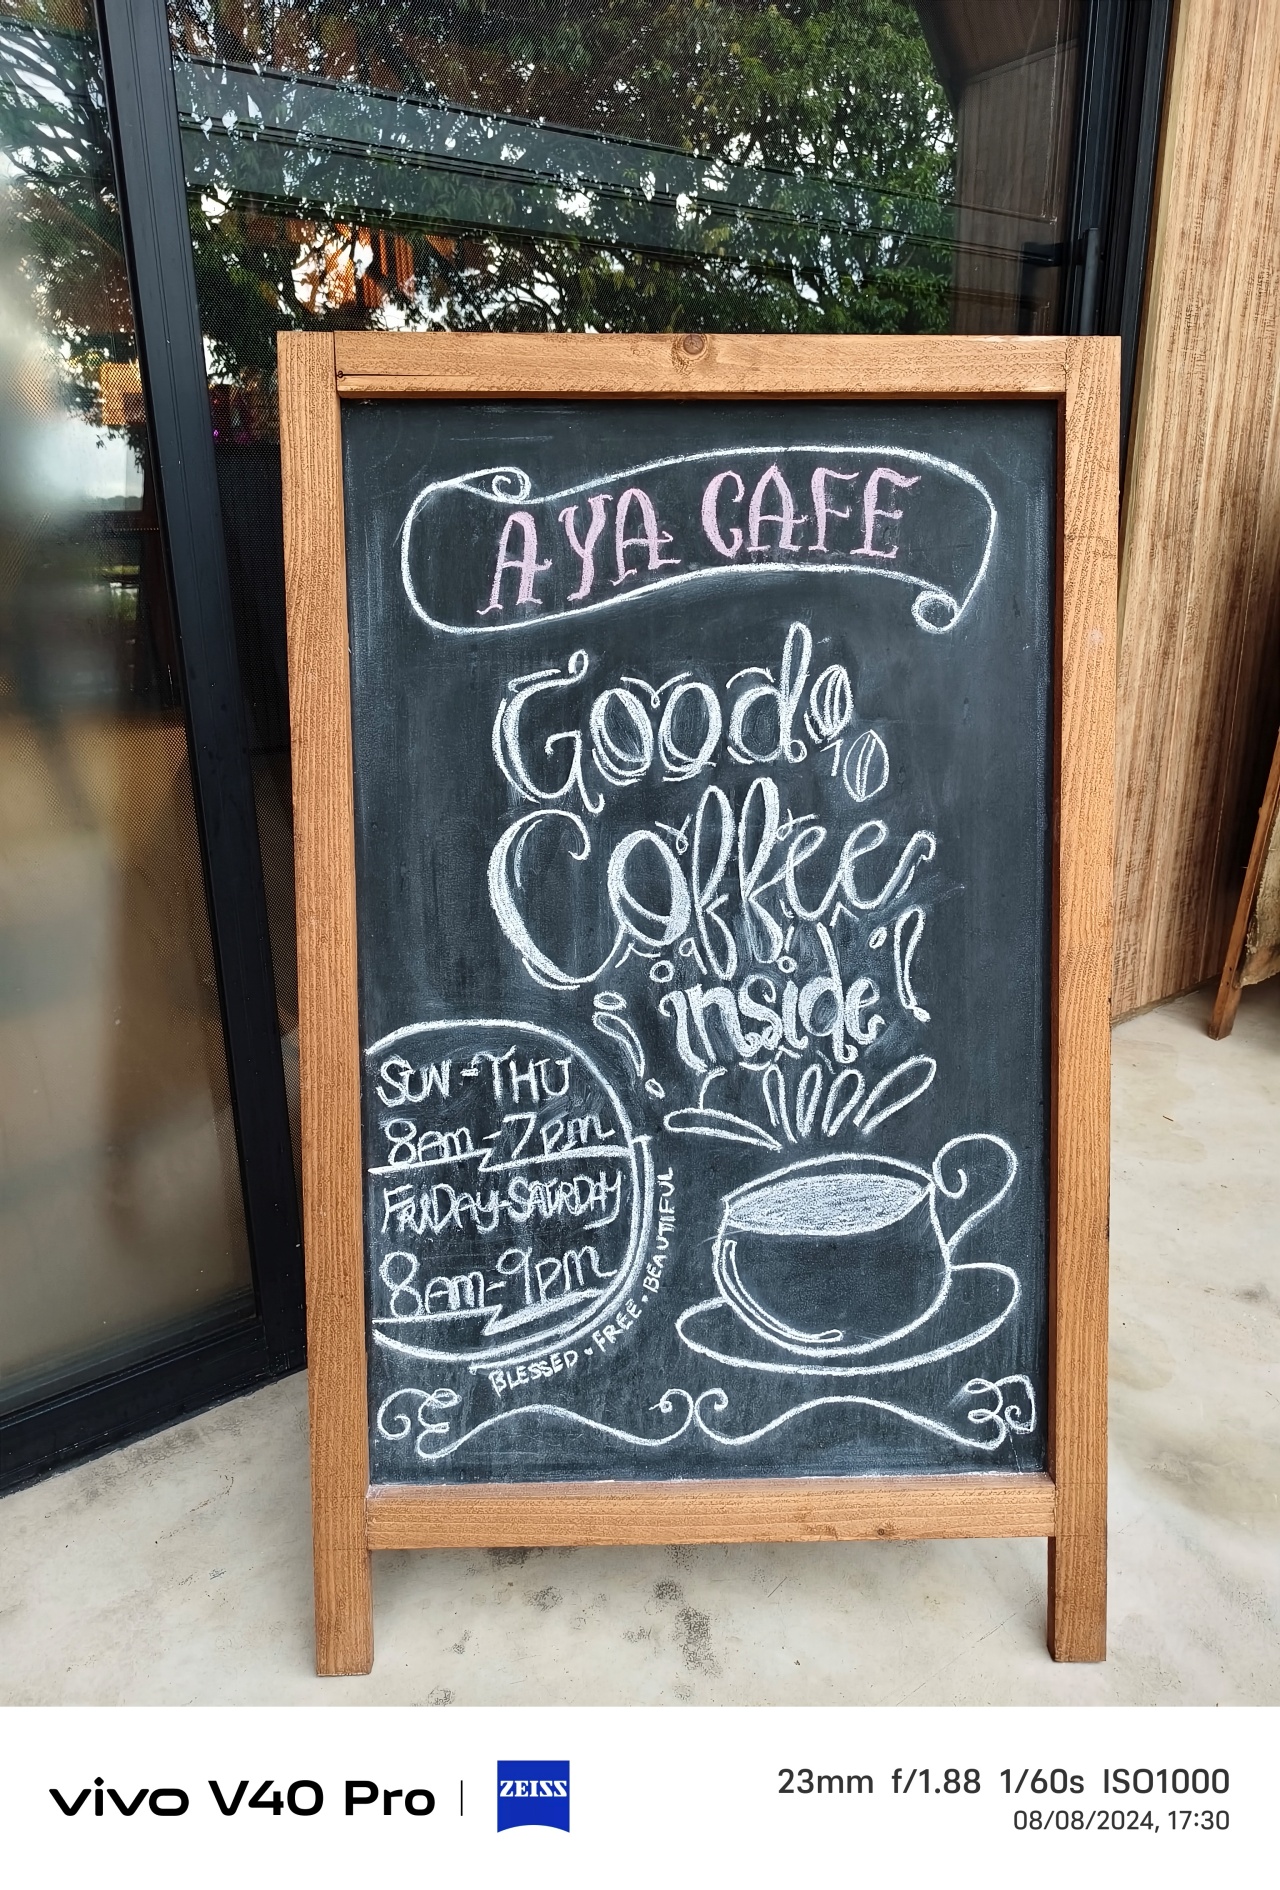 AYA CAFE
Good
Coffee
inside!
SUN-THU
8am-7pm
FRIDAY-SATURDAY
8am-9pm
BLESSED • FREE • BEAUTIFUL
vivo V40 Pro | ZEISS
23mm f/1.88 1/60s ISO1000
08/08/2024, 17:30